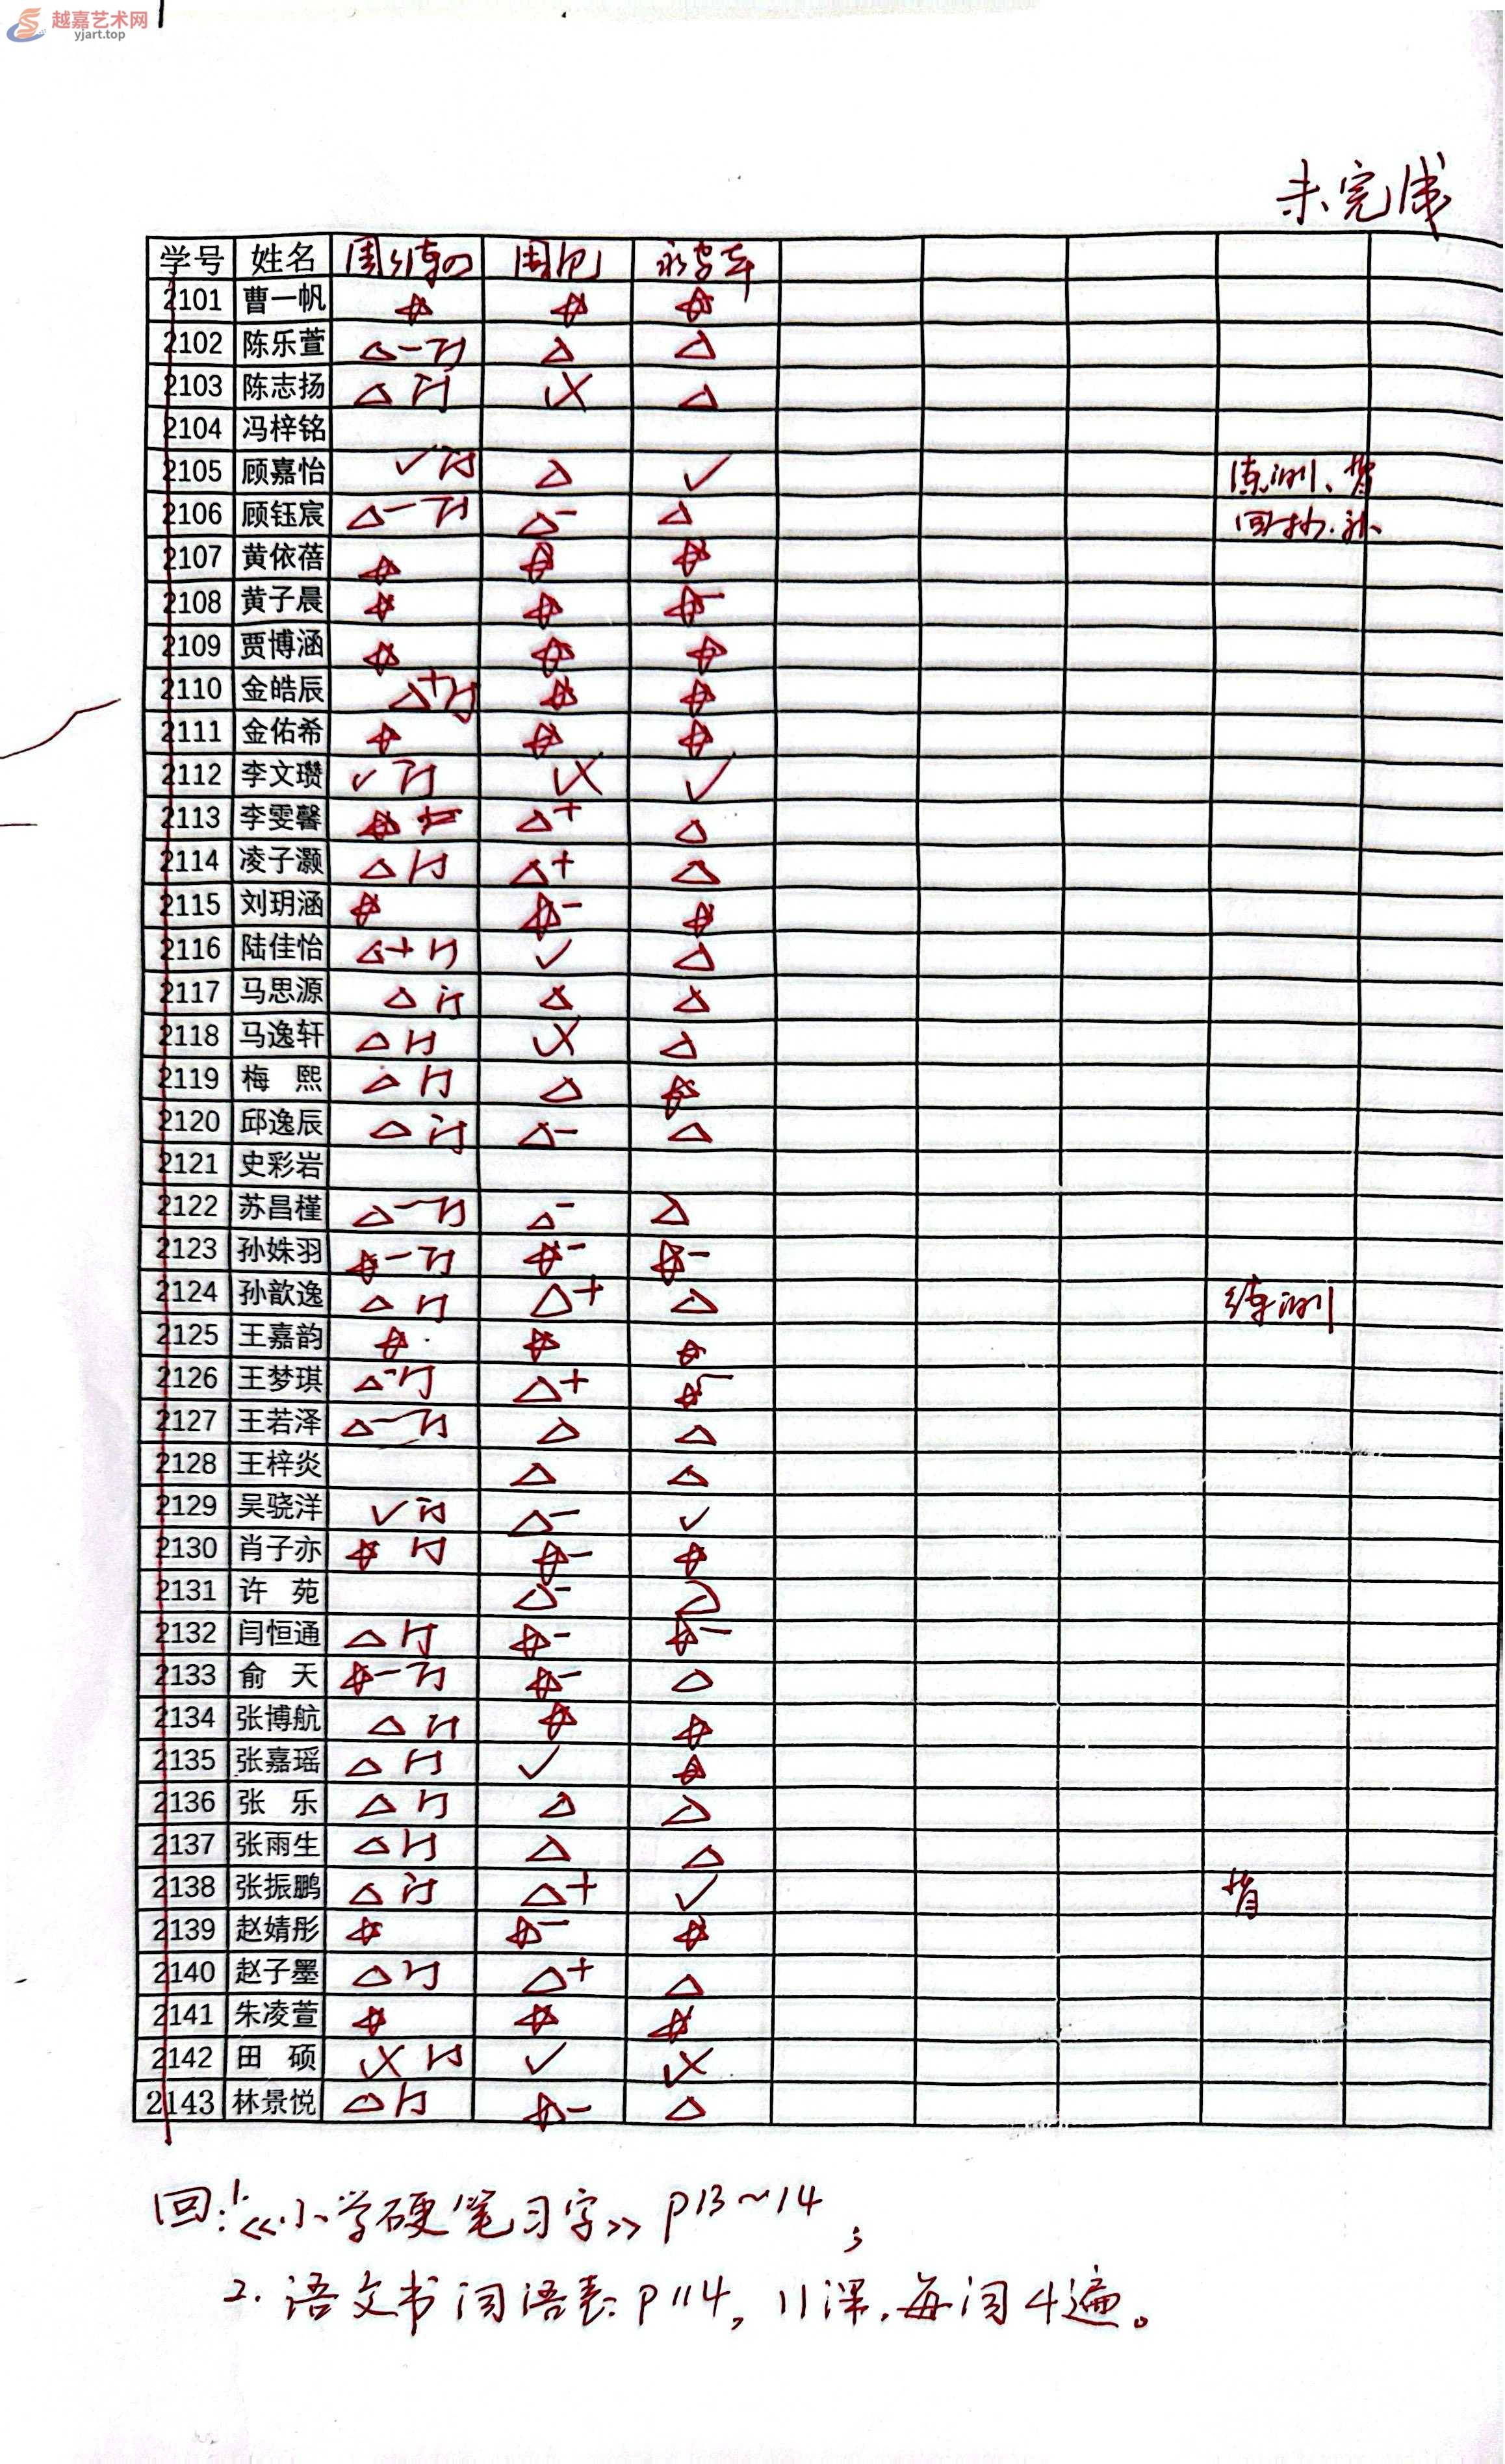 越嘉艺术网
yjart.top
未完成
学号 姓名 周练四 周记
2101 曹一帆 ☆ ☆ ☆
2102 陈乐萱 △-订 △ △
2103 陈志扬 △订 △
2104 冯梓铭
2105 顾嘉怡 ✓订 △ ✓ 练训、背
2106 顾钰宸 △-订 △- △
2107 黄依蓓 ☆ ☆ ☆
2108 黄子晨 ☆ ☆ ☆-
2109 贾博涵 ☆ ☆ ☆
2110 金皓辰 △+订 ☆ ☆
2111 金佑希 ☆ ☆ ☆
2112 李文瓒 ✓订 ✓
2113 李雯馨 ☆ △+ △
2114 凌子灏 △订 △+ △
2115 刘玥涵 ☆ ☆- ☆
2116 陆佳怡 △+订 ✓ △
2117 马思源 △订 △ △
2118 马逸轩 △订 △
2119 梅熙 △订 △ ☆
2120 邱逸辰 △订 △- △
2121 史彩岩
2122 苏昌槿 △-订 △- △
2123 孙姝羽 ☆-订 ☆- ☆-
2124 孙歆逸 △订 △+ △ 练训
2125 王嘉韵 ☆ ☆ ☆
2126 王梦琪 △-订 △+ ☆-
2127 王若泽 △-订 △ △
2128 王梓炎 △ △
2129 吴骁洋 ✓订 △- ✓
2130 肖子亦 ☆订 ☆- ☆
2131 许苑 △- △
2132 闫恒通 △订 ☆- ☆-
2133 俞天 ☆-订 ☆- △
2134 张博航 △订 ☆ ☆
2135 张嘉瑶 △订 ✓ ☆
2136 张乐 △订 △ △
2137 张雨生 △订 △ △
2138 张振鹏 △订 △+ ✓ 背
2139 赵婧彤 ☆ ☆- ☆
2140 赵子墨 △订 △+ △
2141 朱凌萱 ☆ ☆ ☆
2142 田硕 订 ✓
2143 林景悦 △订 ☆- △
回:1.《小学硬笔习字》P13~14;
2.语文书词语表P114,11课,每词4遍。